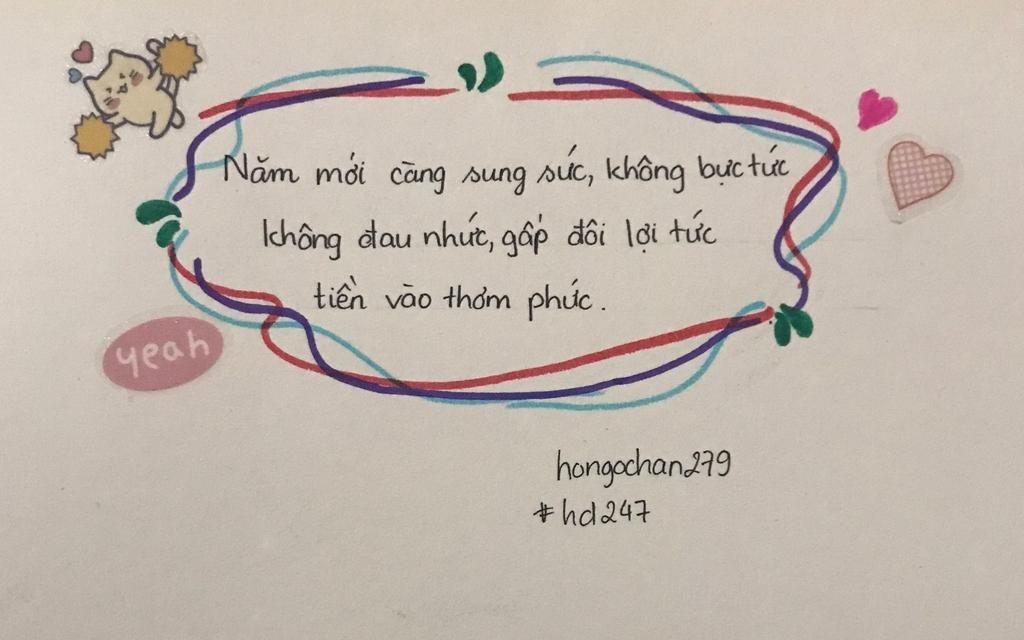 Năm mới càng sung sức, không bực tức
không đau nhức, gấp đôi lợi tức
tiền vào thơm phức.
yeah
hongochan279
#hd247